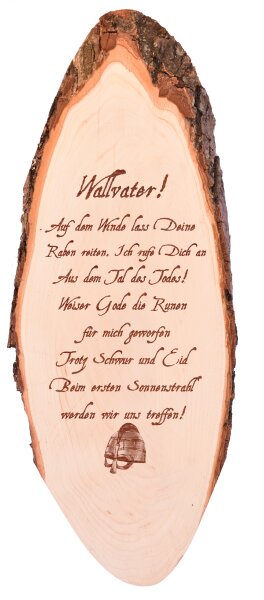 Wallvater!
Auf dem Winde lass Deine
Raben reiten, Ich rufe Dich an
Aus dem Tal des Todes!
Weiser Gode die Runen
für mich geworfen
Trotz Schwur und Eid
Beim ersten Sonnenstrahl
werden wir uns treffen!